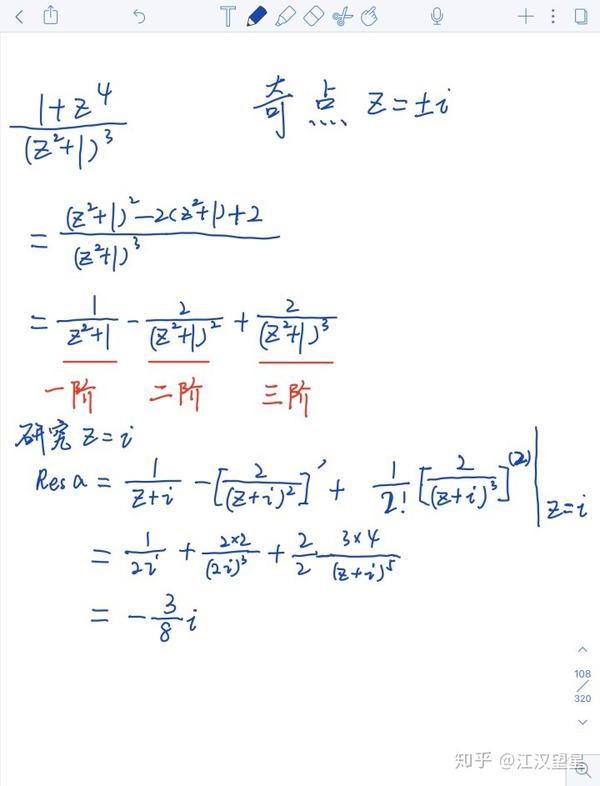 1+z⁴/(z²+1)³ 奇点 z=±i
= (z²+1)²-2(z²+1)+2/(z²+1)³
= 1/z²+1 - 2/(z²+1)² + 2/(z²+1)³
一阶 二阶 三阶
研究 z=i
Res a = 1/z+i - [2/(z+i)²]′ + 1/2! [2/(z+i)³]⁽²⁾ |z=i
= 1/2i + 2×2/(2i)³ + 2/2 3×4/(z+i)⁵
= -3/8 i
108/320
知乎 @江汉望星